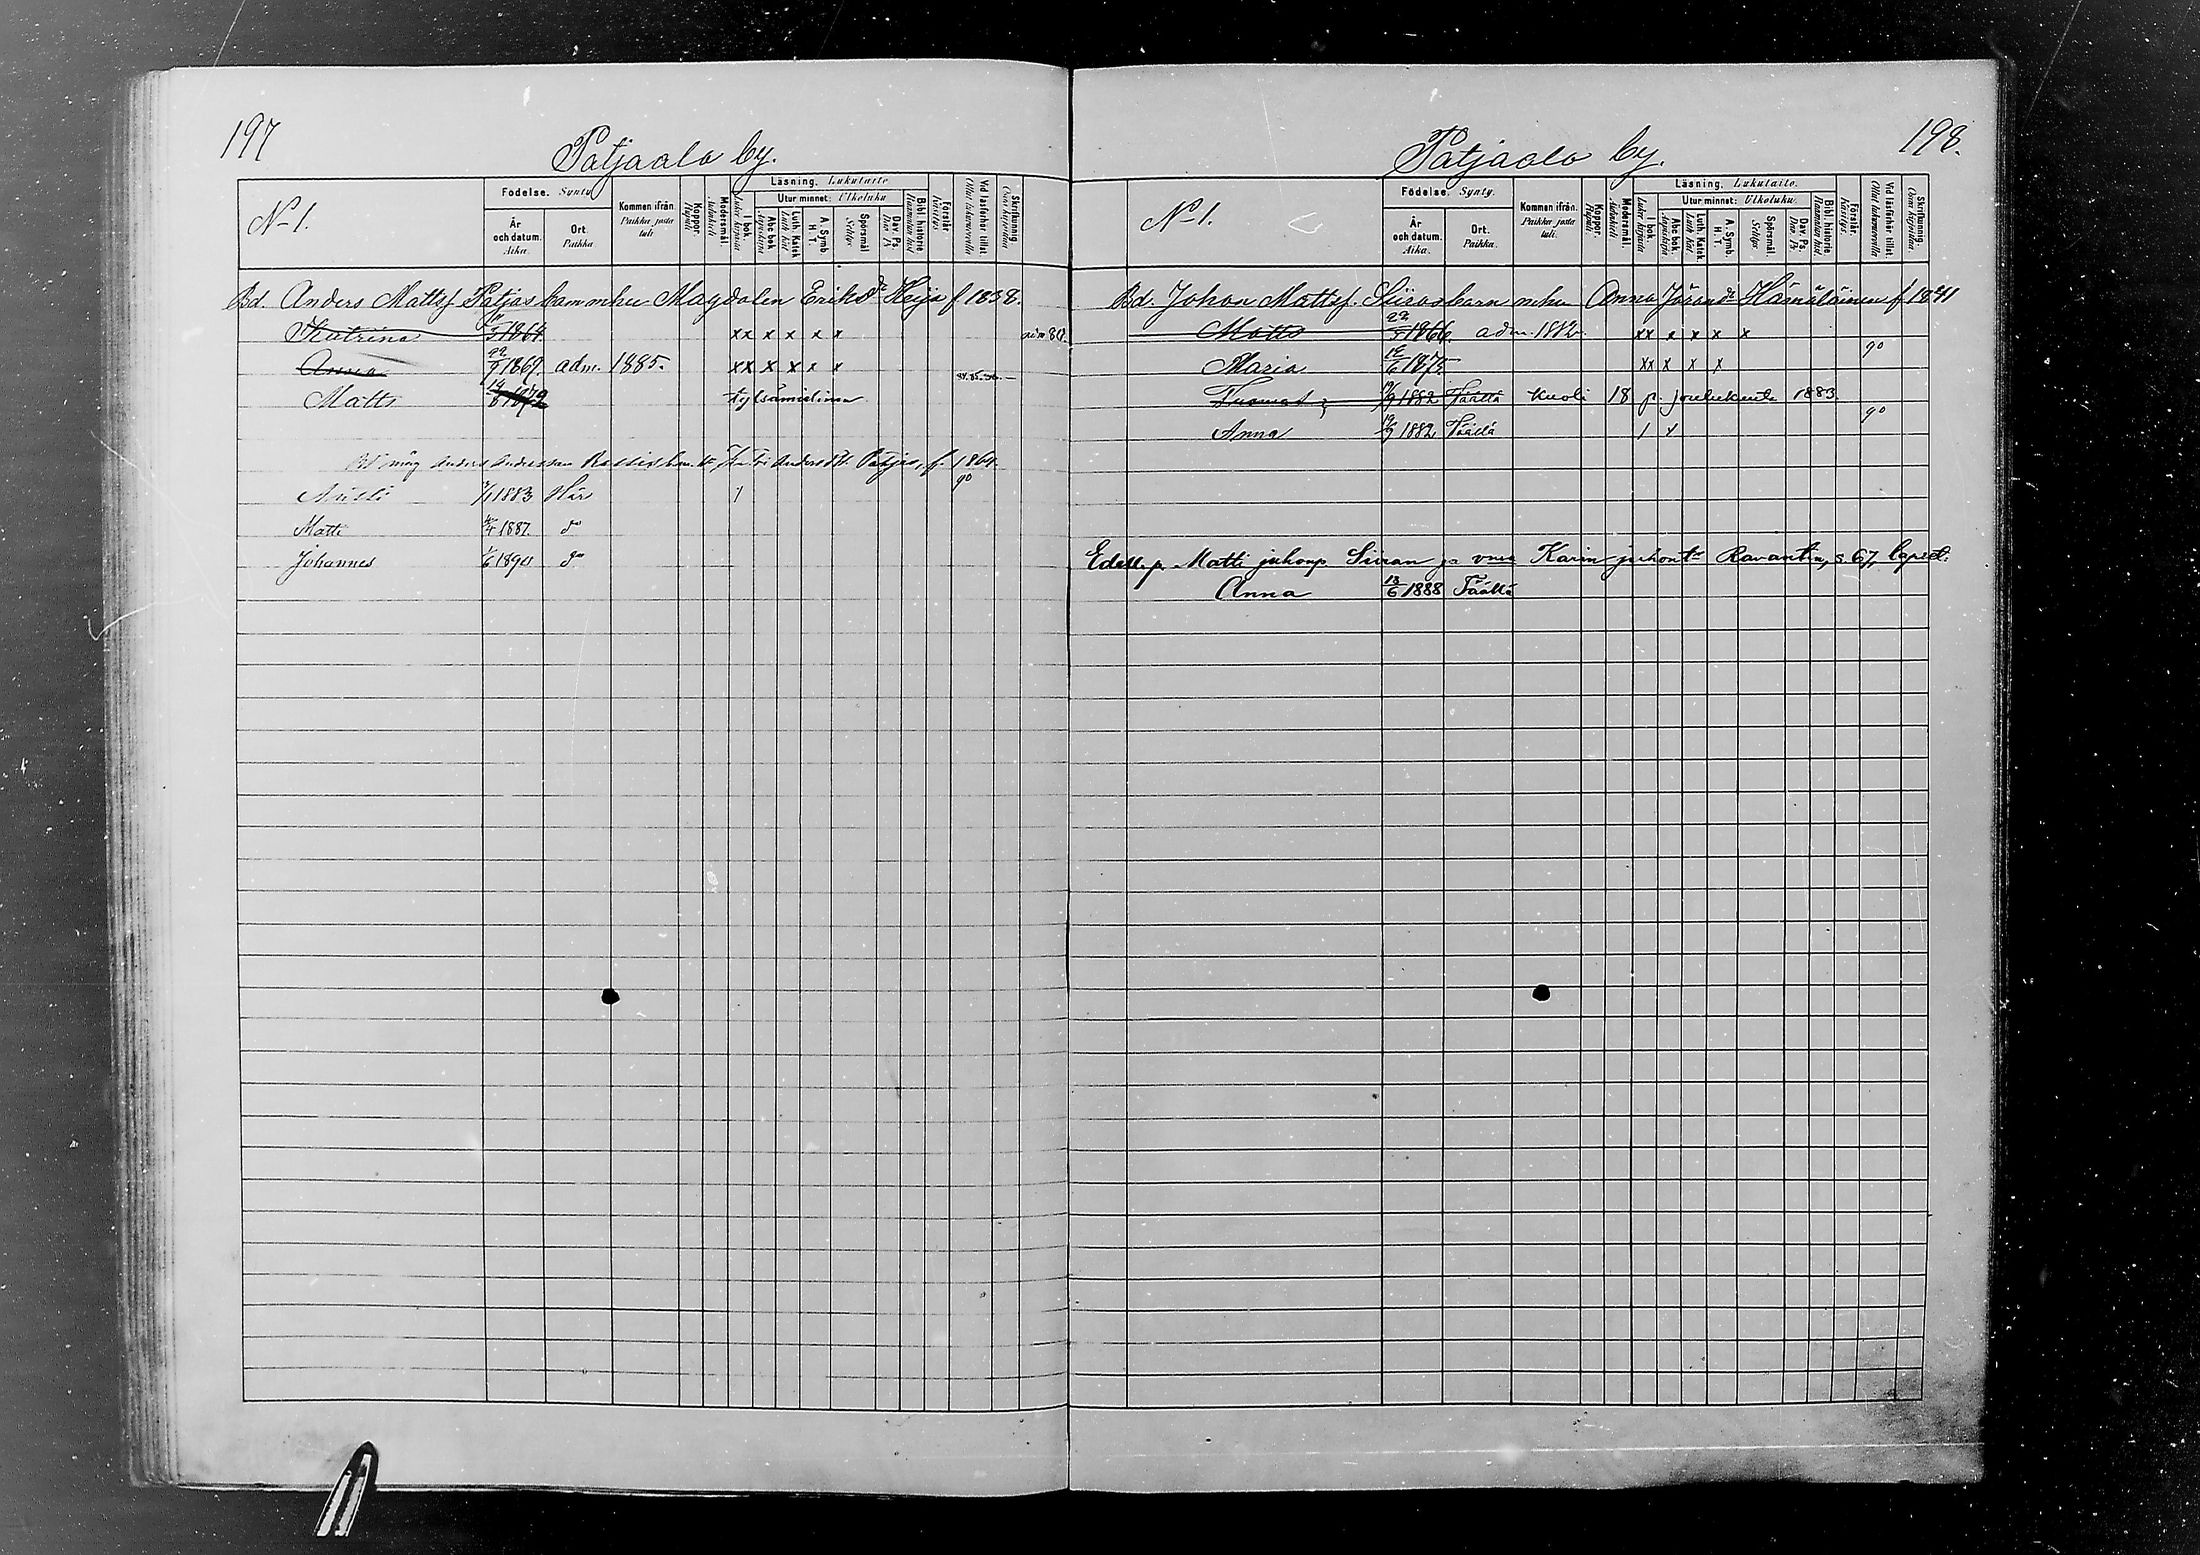 197
Patjaala by.
N 1.
Födelse. Synty
År och datum. Aika.
Ort. Paikka
Kommen ifrån. Paikka josta tuli.
Koppor. Rupuli
Modersmål. Äidinkieli
Läsning. Lukutaito
I bok. Luku kirjasta
Utur minnet: Ulkoluku
Abc bok. Aapiskirja
Luth. Katek
A. Symb. H. T.
Spörsmål Selitys
Dav. Ps. Dav. Ps
Bibl. historie
Förstår. Käsitys
Vid läsförhör tillst.
Skrifkunnig. Osaa kirjoittaa
Bd. Anders Mattsf. Patjas barn m. hu Magdalen Eriksdr Heija f 1838.
Katrina 1864 xx x x x x adm 80.
Anna 22/7 1869. adm. 1885. xx x x x x
Matts 14/6 1872 tylsämielinen 84. 85.
Bds måg Anders Andersson Rassis barn Katri Andersdtr Patjas, f. 1864.
1883 Här 1 90
Matti 1887. do
Johannes 1/6 1890 do
198.
Patjaala by.
N 1.
Födelse. Synty.
År och datum. Aika.
Ort. Paikka.
Kommen ifrån. Paikka josta tuli.
Koppor. Rupuli
Modersmål. Äidinkieli
Läsning. Lukutaito.
I bok. Luku kirjasta
Utur minnet: Ulkoluku.
Abc bok. Aapiskirja
Luth. Katek.
A. Symb. H. T.
Spörsmål. Selitys
Dav. Ps. Dav. Ps
Bibl. historie
Förstår. Käsitys.
Vid läsförhör tillst.
Skrifkunnig. Osaa kirjoittaa
Bd. Johan Mattsf. Siiras barn m hu Anna Jöransdr Hämäläinen f 1841
Matts 1866. adm. 1882. xx x x x x
Maria 1875 xx x x x 90
Tuomas 1882 Täällä kuoli 18 p. joulukuuta 1883.
Anna 1882 Täällä 1 x 90
Edell. p. Matti juhonp Siiran ja vmo Karin juhont Ravantin, s 67, lapset.
Anna 13/6 1888 Täällä